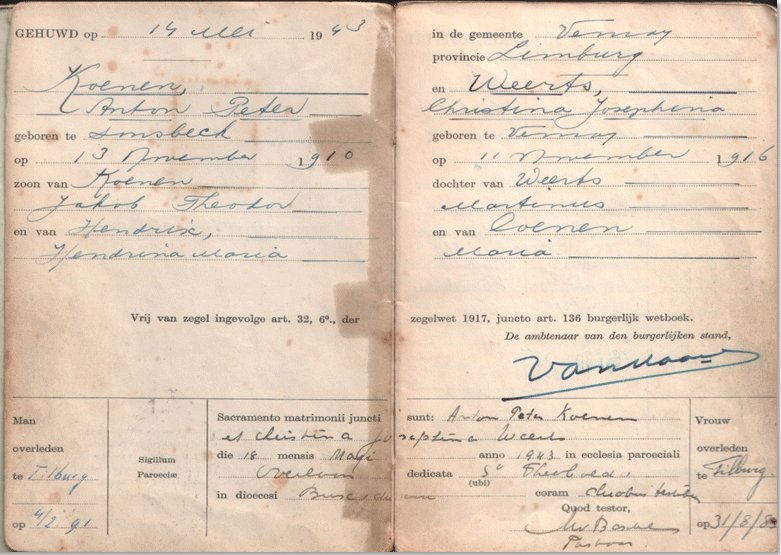 GEHUWD op 14 Mei 1943
Koenen,
Anton Peter
geboren te Sonsbeck
op 13 November 1910
zoon van Koenen
Jakob Theodor
en van Hendrix,
Hendrina Maria
Vrij van zegel ingevolge art. 32, 6°., der
in de gemeente Venray
provincie Limburg
en Weerts,
Christina Josephina
geboren te Venray
op 11 November 1916
dochter van Weerts
Martinus
en van Coenen
Maria
zegelwet 1917, juncto art. 136 burgerlijk wetboek.
De ambtenaar van den burgerlijken stand,
Man
overleden
te Tilburg
op 4/2 '91
Sigillum
Parœciæ
Sacramento matrimonii juncti sunt: Anton Peter Koenen
et Christina Joseptina Weerts
die 18 mensis Maji anno 1943 in ecclesia parœciali
Overloon dedicata S° Theobaldo
(ubi)
in diœcesi coram duobus testibus
Quod testor,
Pastoor
Vrouw
overleden
te Tilburg
op 31/8/83